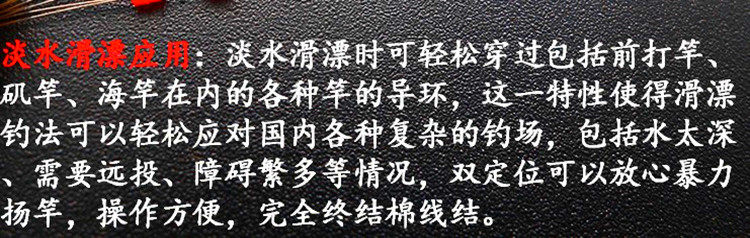 淡水滑漂应用：淡水滑漂时可轻松穿过包括前打竿、
矶竿、海竿在内的各种竿的导环，这一特性使得滑漂
钓法可以轻松应对国内各种复杂的钓场，包括水太深
、需要远投、障碍繁多等情况，双定位可以放心暴力
扬竿，操作方便，完全终结棉线结。